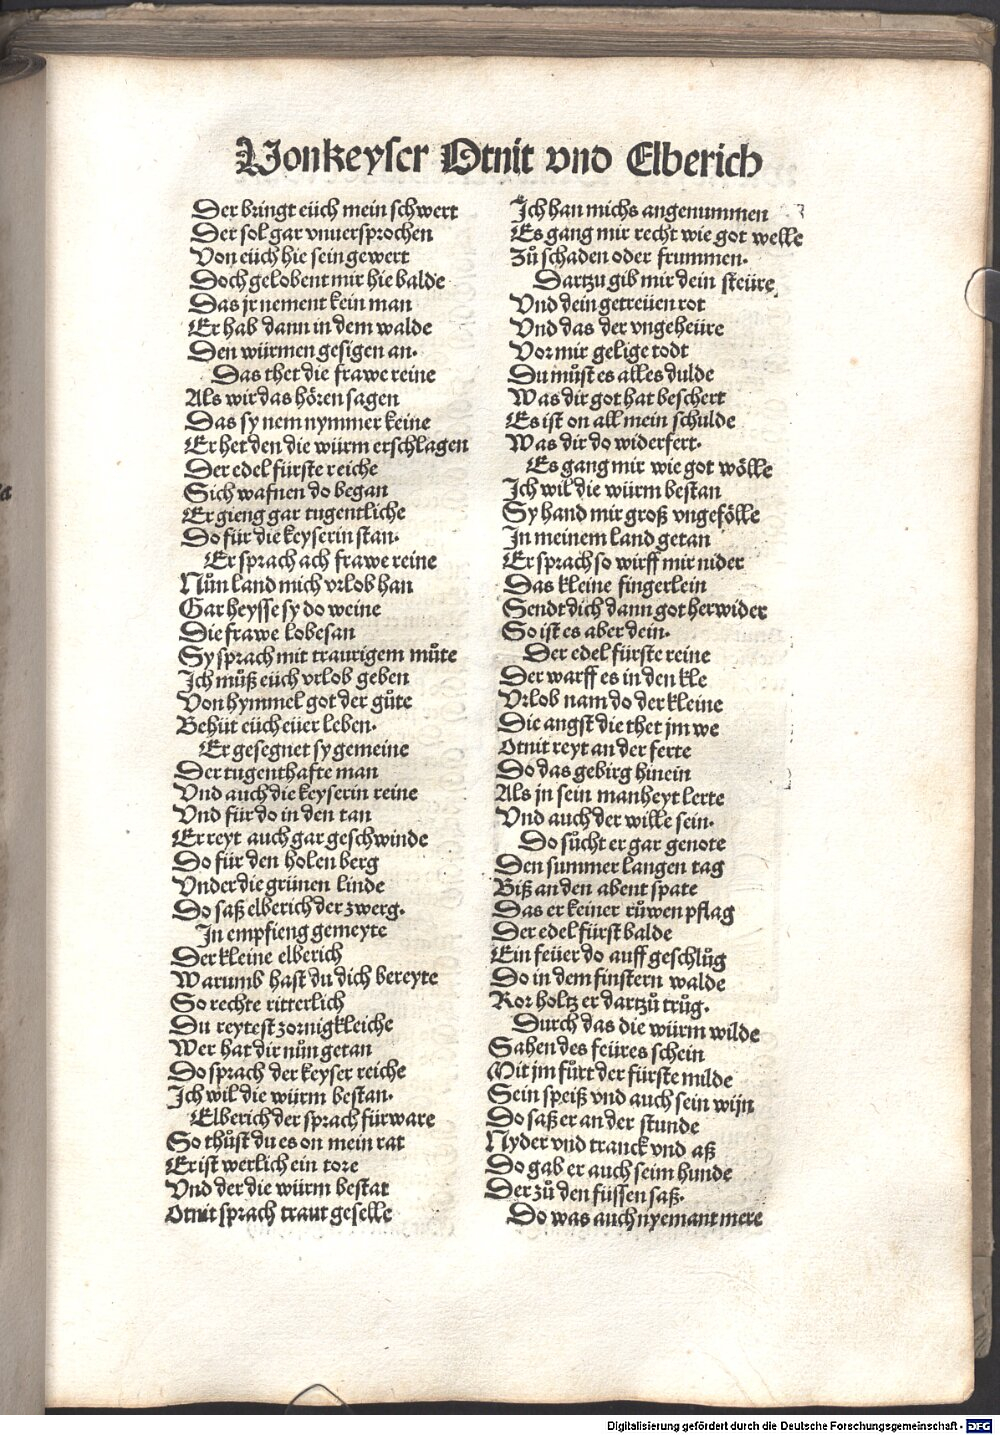 Von keyser Otnit vnd Elberich
Der bringt eüch mein schwert
Der sol gar vnuersprochen
Von eüch hie sein gewert
Doch gelobent mir hie balde
Das jr nement kein man
Er hab dann in dem walde
Den würmen gesigen an.
Das thet die frawe reine
Als wir das hören sagen
Das sy nem nymmer keine
Er het den die würm erschlagen
Der edel fürste reiche
Sich wafnen do began
Er gieng gar tugentliche
Do für die keyserin stan.
Er sprach ach frawe reine
Nůn land mich vrlob han
Gar heysse sy do weine
Die frawe lobesan
Sy sprach mit traurigem můte
Ich můß eüch vrlob geben
Von hymmel got der gůte
Behüt eüch eüer leben.
Er gesegnet sy gemeine
Der tugenthafte man
Vnd auch die keyserin reine
Vnd für do in den tan
Er reyt auch gar geschwinde
Do für den holen berg
Vnder die grünen linde
Do saß elberich der zwerg.
In empfieng gemeyte
Der kleine elberich
Warumb hast du dich bereyte
So rechte ritterlich
Du reytest zornigkleiche
Wer hat dir nůn getan
Do sprach der keyser reiche
Ich wil die würm bestan.
Elberich der sprach fürware
So thůst du es on mein rat
Er ist werlich ein tore
Vnd der die würm bestat
Otnit sprach traut geselle
Ich han michs angenummen
Es gang mir recht wie got welle
Zů schaden oder frummen.
Dartzu gib mir dein steüre
Vnd dein getreüen rot
Vnd das der vngeheüre
Vor mir gelige todt
Du můst es alles dulde
Was dir got hat beschert
Es ist on all mein schulde
Was dir do widerfert.
Es gang mir wie got wölle
Ich wil die würm bestan
Sy hand mir groß vngefölle
In meinem land getan
Er sprach so wirff mir nider
Das kleine fingerlein
Sendt dich dann got herwider
So ist es aber dein.
Der edel fürste reine
Der warff es in den kle
Vrlob nam do der kleine
Die angst die thet jm we
Otnit reyt an der ferte
Do das gebirg hinein
Als jn sein manheyt lerte
Vnd auch der wille sein.
Do sůcht er gar genote
Den summer langen tag
Biß an den abent spate
Das er keiner růwen pflag
Der edel fürst balde
Ein feüer do auff geschlůg
Do in dem finstern walde
Ror holtz er dartzů trůg.
Durch das die würm wilde
Sahen des feüres schein
Mit jm fůrt der fürste milde
Sein speiß vnd auch sein wijn
Do saß er an der stunde
Nyder vnd tranck vnd aß
Do gab er auch seim hunde
Der zů den füssen saß.
Do was auch nyemant mere
Digitalisierung gefördert durch die Deutsche Forschungsgemeinschaft - DFG